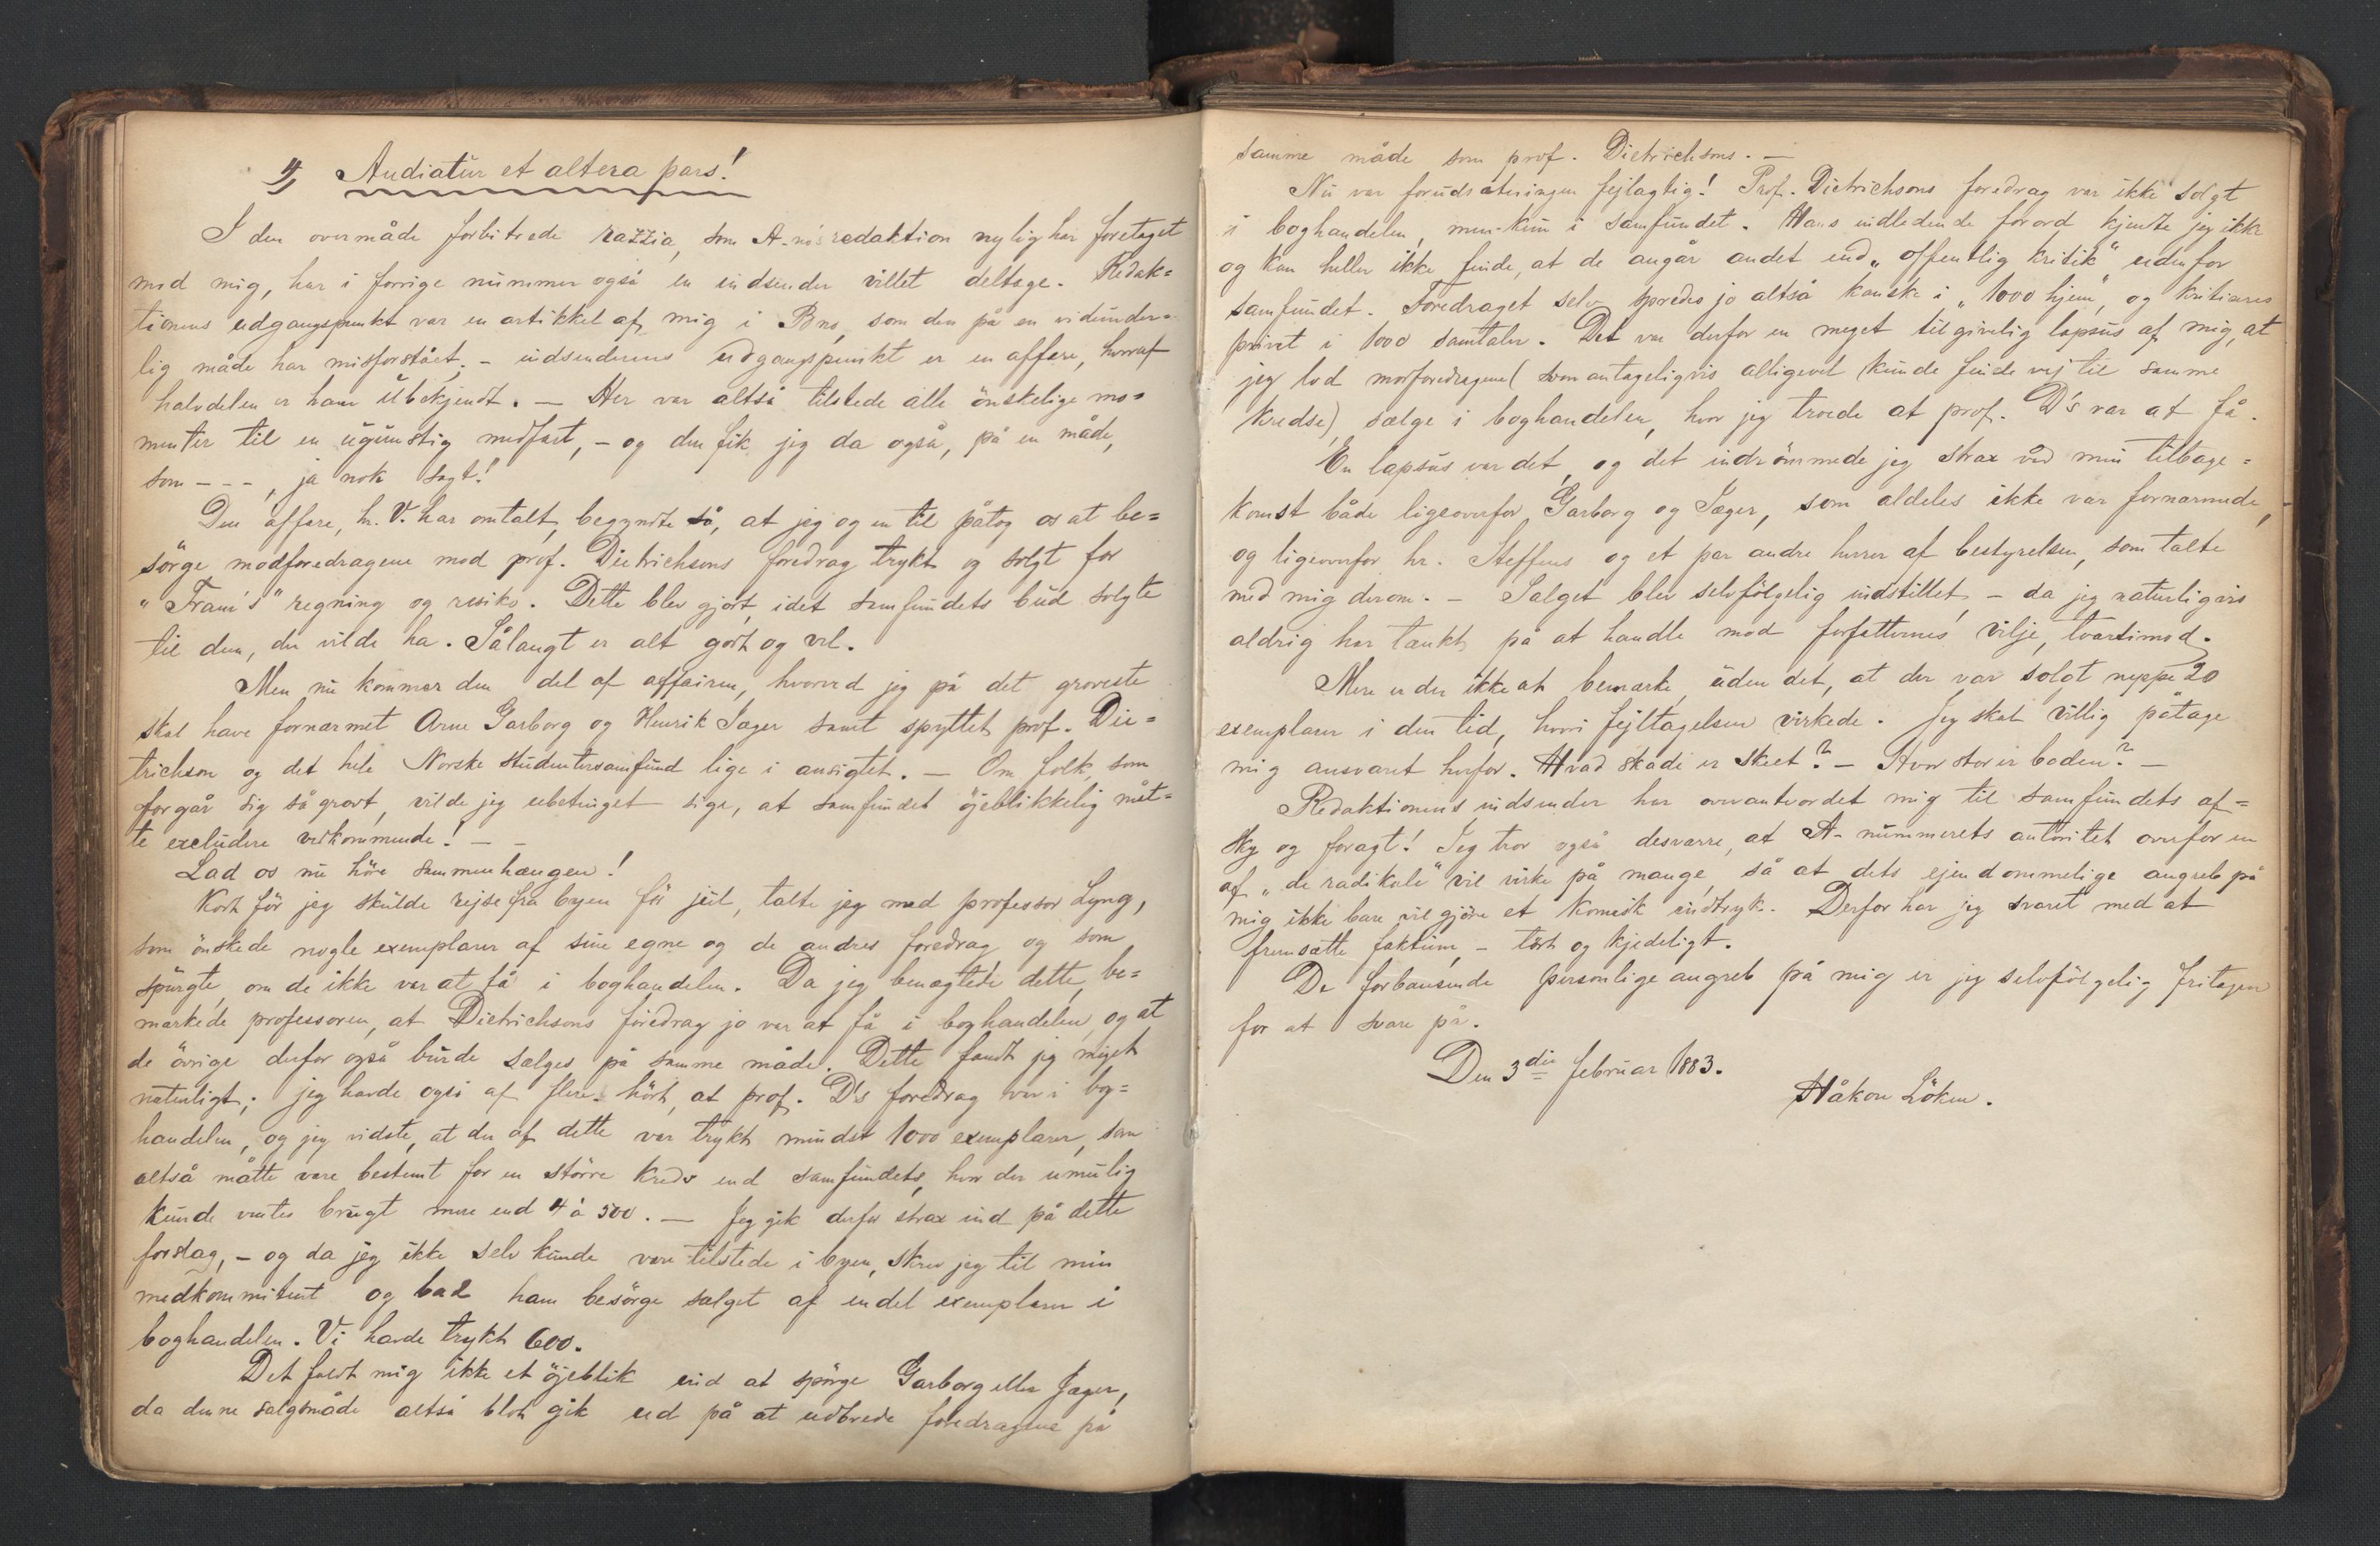 4) Audiatur et altera pars!
I den overmåde forbitrede razzia, som A-no's redaktion nylig har foretaget
mod mig, har i forrige nummer også en indsender villet deltage. Redak=
tionens udgangspunkt var en artikkel af mig i Bno, som den på en vidunder=
lig måde har misforstået; - indsenderens udgangspunkt er en affære, hvoraf
halvdelen er ham ubekjendt. — Her var altså tilstede alle önskelige mo=
menter til en ugunstig medfart, - og den fik jeg da også, på en måde,
som - - -, ja nok sagt!
Den affære, hr. V. har omtalt, begyndte så, at jeg og en til påtog os at be=
sörge modforedragene mod prof. Dietrichsons foredrag trykt og solgt for
"Fram's" regning og risiko. Dette blev gjort, idet samfundets bud solgte
til dem, der vilde ha. Sålangt er alt godt og vel.
Men nu kommer den del af affairen, hvorved jeg på det groveste
skal have fornærmet Arne Garborg og Henrik Jæger samt spyttet prof. Die=
trichson og det hele Norske Studentersamfund lige i ansigtet. — Om folk, som
forgår sig så grovt, vilde jeg ubetinget sige, at samfundet öjeblikkelig måt=
te excludere vedkommende! — —
Lad os nu höre sammenhængen!
Kort för jeg skulde rejse fra byen för jul, talte jeg med professor Lyng,
som önskede nogle exemplarer af sine egne og de andres foredrag og som
spurgte, om de ikke var at få i boghandelen. Da jeg benægtede dette, be=
mærkede professoren, at Dietrichsons foredrag jo var at få i boghandelen og at
de övrige derfor også burde sælges på samme måde. Dette fandt jeg meget
naturligt; jeg havde også af flere hört, at prof. D's foredrag var i bog=
handelen, og jeg vidste, at der af dette var trykt mindst 1000 exemplarer, som
altså måtte være bestemt for en större kreds end samfundets, hvor der umulig
kunde ventes brugt mere end 4 à 500. — Jeg gik derfor strax ind på dette
forslag, - og da jeg ikke selv kunde være tilstede i byen, skrev jeg til min
medkommitent og bad ham besörge salget af endel exemplarer i
boghandelen. Vi havde trykt 600.
Det faldt mig ikke et öjeblik ind at spörge Garborg eller Jæger,
da denne salgsmåde altså blot gik ud på at udbrede foredragene på
samme måde som prof. Dietrichsons. —
Nu var forudsætningen fejlagtig! Prof. Dietrichsons foredrag var ikke solgt
i boghandelen, men kun i samfundet. Hans indledende forord kjendte jeg ikke
og kan heller ikke finde, at de angår andet end "offentlig kritik" udenfor
samfundet. Foredraget selv spredes jo altså kanske i "1000 hjem", og kritiseres
privat i 1000 samtaler. Det var derfor en meget tilgivelig lapsus af mig, at
jeg lod modforedragene (som antageligvis alligevel kunde finde vej til samme
kredse) sælge i boghandelen, hvor jeg troede at prof. D's var at få.
En lapsus var det, og det indrömmede jeg strax ved min tilbage=
komst både ligeoverfor Garborg og Jæger, som aldeles ikke var fornærmede, -
og ligeoverfor hr. Steffens og et par andre herrer af bestyrelsen, som talte
med mig derom. - Salget blev selvfölgelig indstillet, - da jeg naturligvis
aldrig har tænkt på at handle mod forfatternes vilje, tvertimod.
Mere er der ikke at bemærke, uden det, at der var solgt neppe 20
exemplarer i den tid, hvori fejltagelsen virkede. Jeg skal villig påtage
mig ansvaret herfor. Hvad skade er skeet? - Hvor stor er boden? -
Redaktionens indsender har overantvordet mig til samfundets af=
sky og foragt! Jeg tror også desværre, at A-nummerets autoritet overfor en
af "de radikale" vil virke på mange, så at dets ejendommelige angreb på
mig ikke bare vil gjöre et komisk indtryk. Derfor har jeg svaret med at
fremsætte faktum, - tört og kjedeligt.
De forbausende personlige angreb på mig er jeg selvfölgelig fritagen
for at svare på.
Den 3die februar 1883.
Håkon Löken.